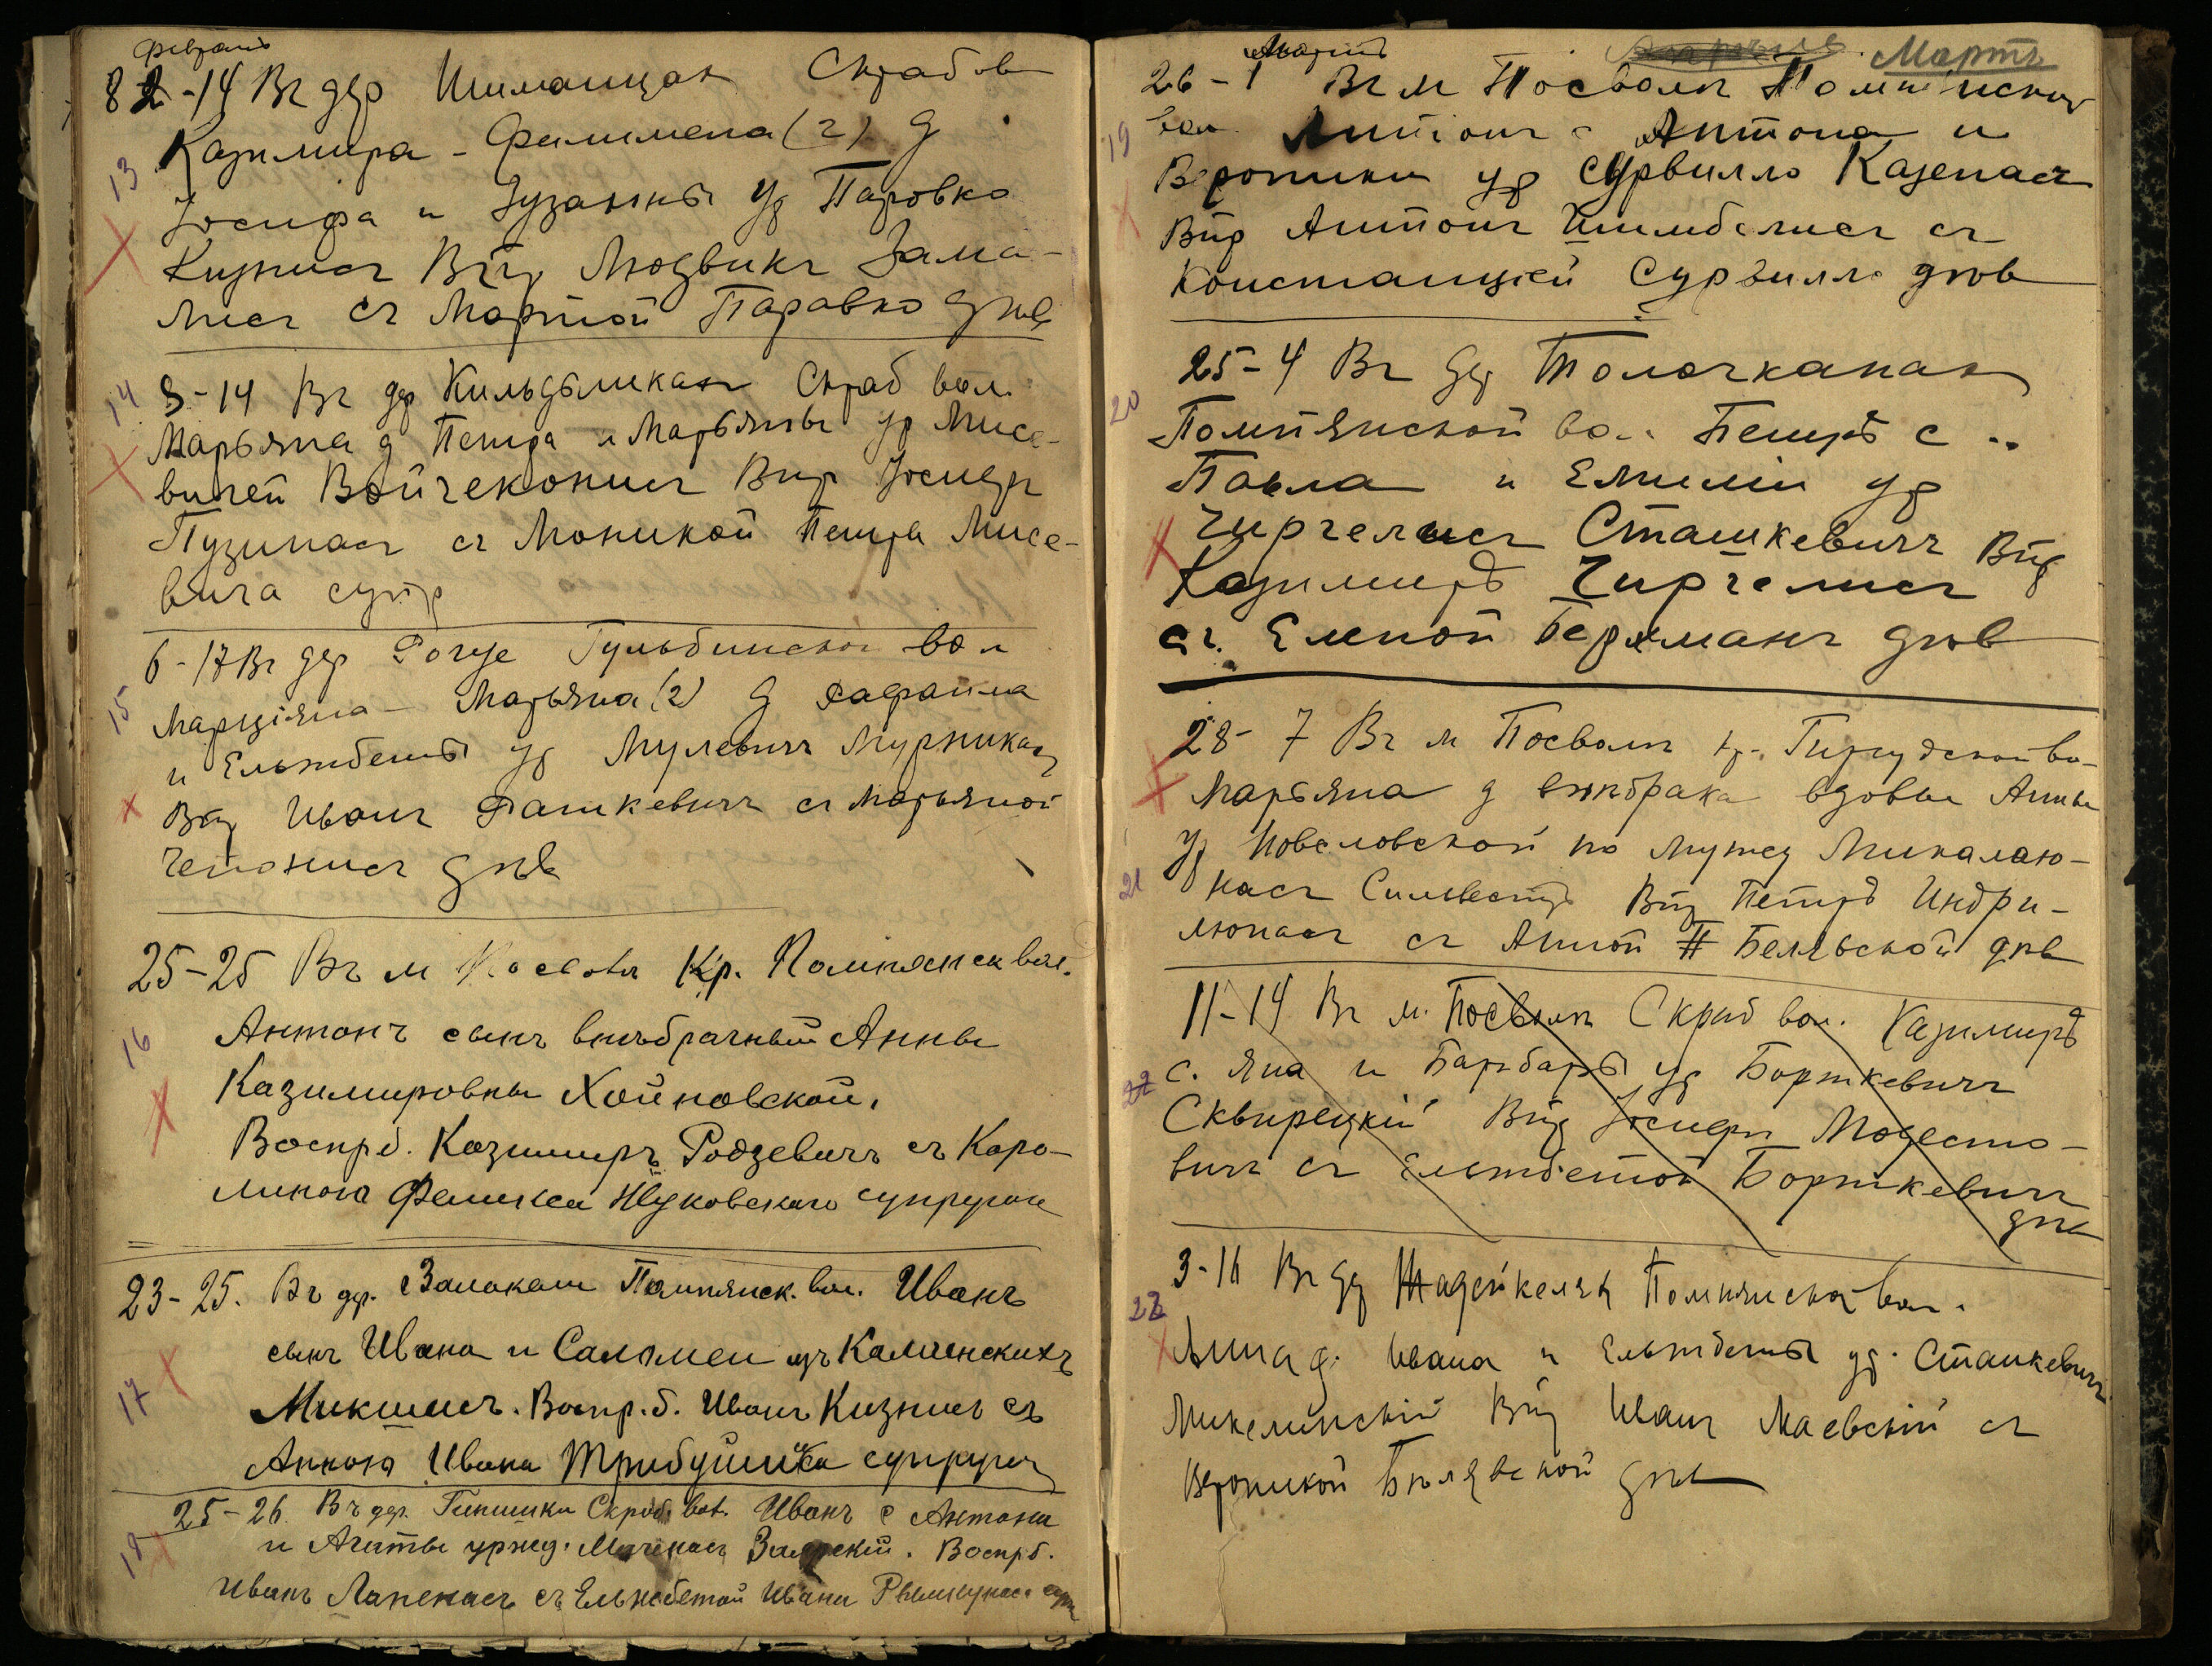 Февраль
8 2-14 Въ дер Шиманцахъ Скрабов
13 Казимира-Филимена (2) д
Іосифа и Зузанны ур Паровко
Кизнисъ Впр Людвикъ Зама-
лисъ съ Мартой Паравко двѣ
14 9-14 Въ дер Кильдыликахъ Скраб вол.
Марьяна д Петра и Марьянны ур Мисе-
вичей Войчеконисъ Впр Іосифъ
Пузинасъ съ Моникой Петра Мисе-
вича супр
6-17 Въ дер Гульбинской вол
15 Марціяна - Марьяна (2) д Рафаила
и Ельжбеты ур Мулевичъ Мурникас
Впр Иванъ Рашкевичъ съ Марьяной
Чепонисъ двѣ
25-25 Въ м Посволь Кр. Помпянск вол.
16 Антонъ сынъ внѣбрачный Анны
Казимировны Хойновской.
Воспр б. Казимиръ Родзевичъ съ Каро-
линою Феликса Жуковскаго супругою
23-25. Въ дер. Залокаи Помпянск. вол. Иванъ
сынъ Ивана и Саломеи изъ Калиенскихъ
17 Микшисъ. Воспр. б. Иванъ Кизнисъ съ
Анною Ивана Трибушика супруги
25-26. Въ дер. Гикишки Скраб. вол. Иванъ с Антона
18 и Агаты урожд. Мачекасъ Воспр б.
Иванъ Лапенасъ съ Ельжбетой Ивана супр
Мартъ Мартъ
26-1 Въ м Посволь Помпянской
19 вол Антонъ с Антона и
Вероники ур Сурвилло Казенасъ
Впр Антонъ Шимбелисъ съ
Констанціей Сурвилло двѣ
25-4 Въ дер Толочканахъ
20 Помпянской вол. Петръ с
Павла и Емиліи ур
Чиргелисъ Сташкевичъ Впр
Казимиръ Чиргелисъ
съ. Еленой Беряманъ двѣ
28-7 Въ м Посволь кр.
Марьяна д внѣбрака вдовы Анны
ур Новеловской по мужу Микалаю-
21 насъ Сильвестръ Впр Петръ Индри-
люнасъ съ Анной Бельской двѣ
11-14 Въ м. Посволь Скраб вол. Казимиръ
22 с. Яна и Барбары ур Борткевичъ
Сквирецкій Впр Іосифъ Модесто-
вичъ съ Ельжбетой Борткевичъ
двѣ
3-16 Въ дер Жадейкеляхъ Помпянской вол.
22 Анна д. Ивана и Ельжбеты ур. Станкевичъ
Микелинскій Впр Иванъ Маевскій съ
Вероникой Бѣлявской двѣ